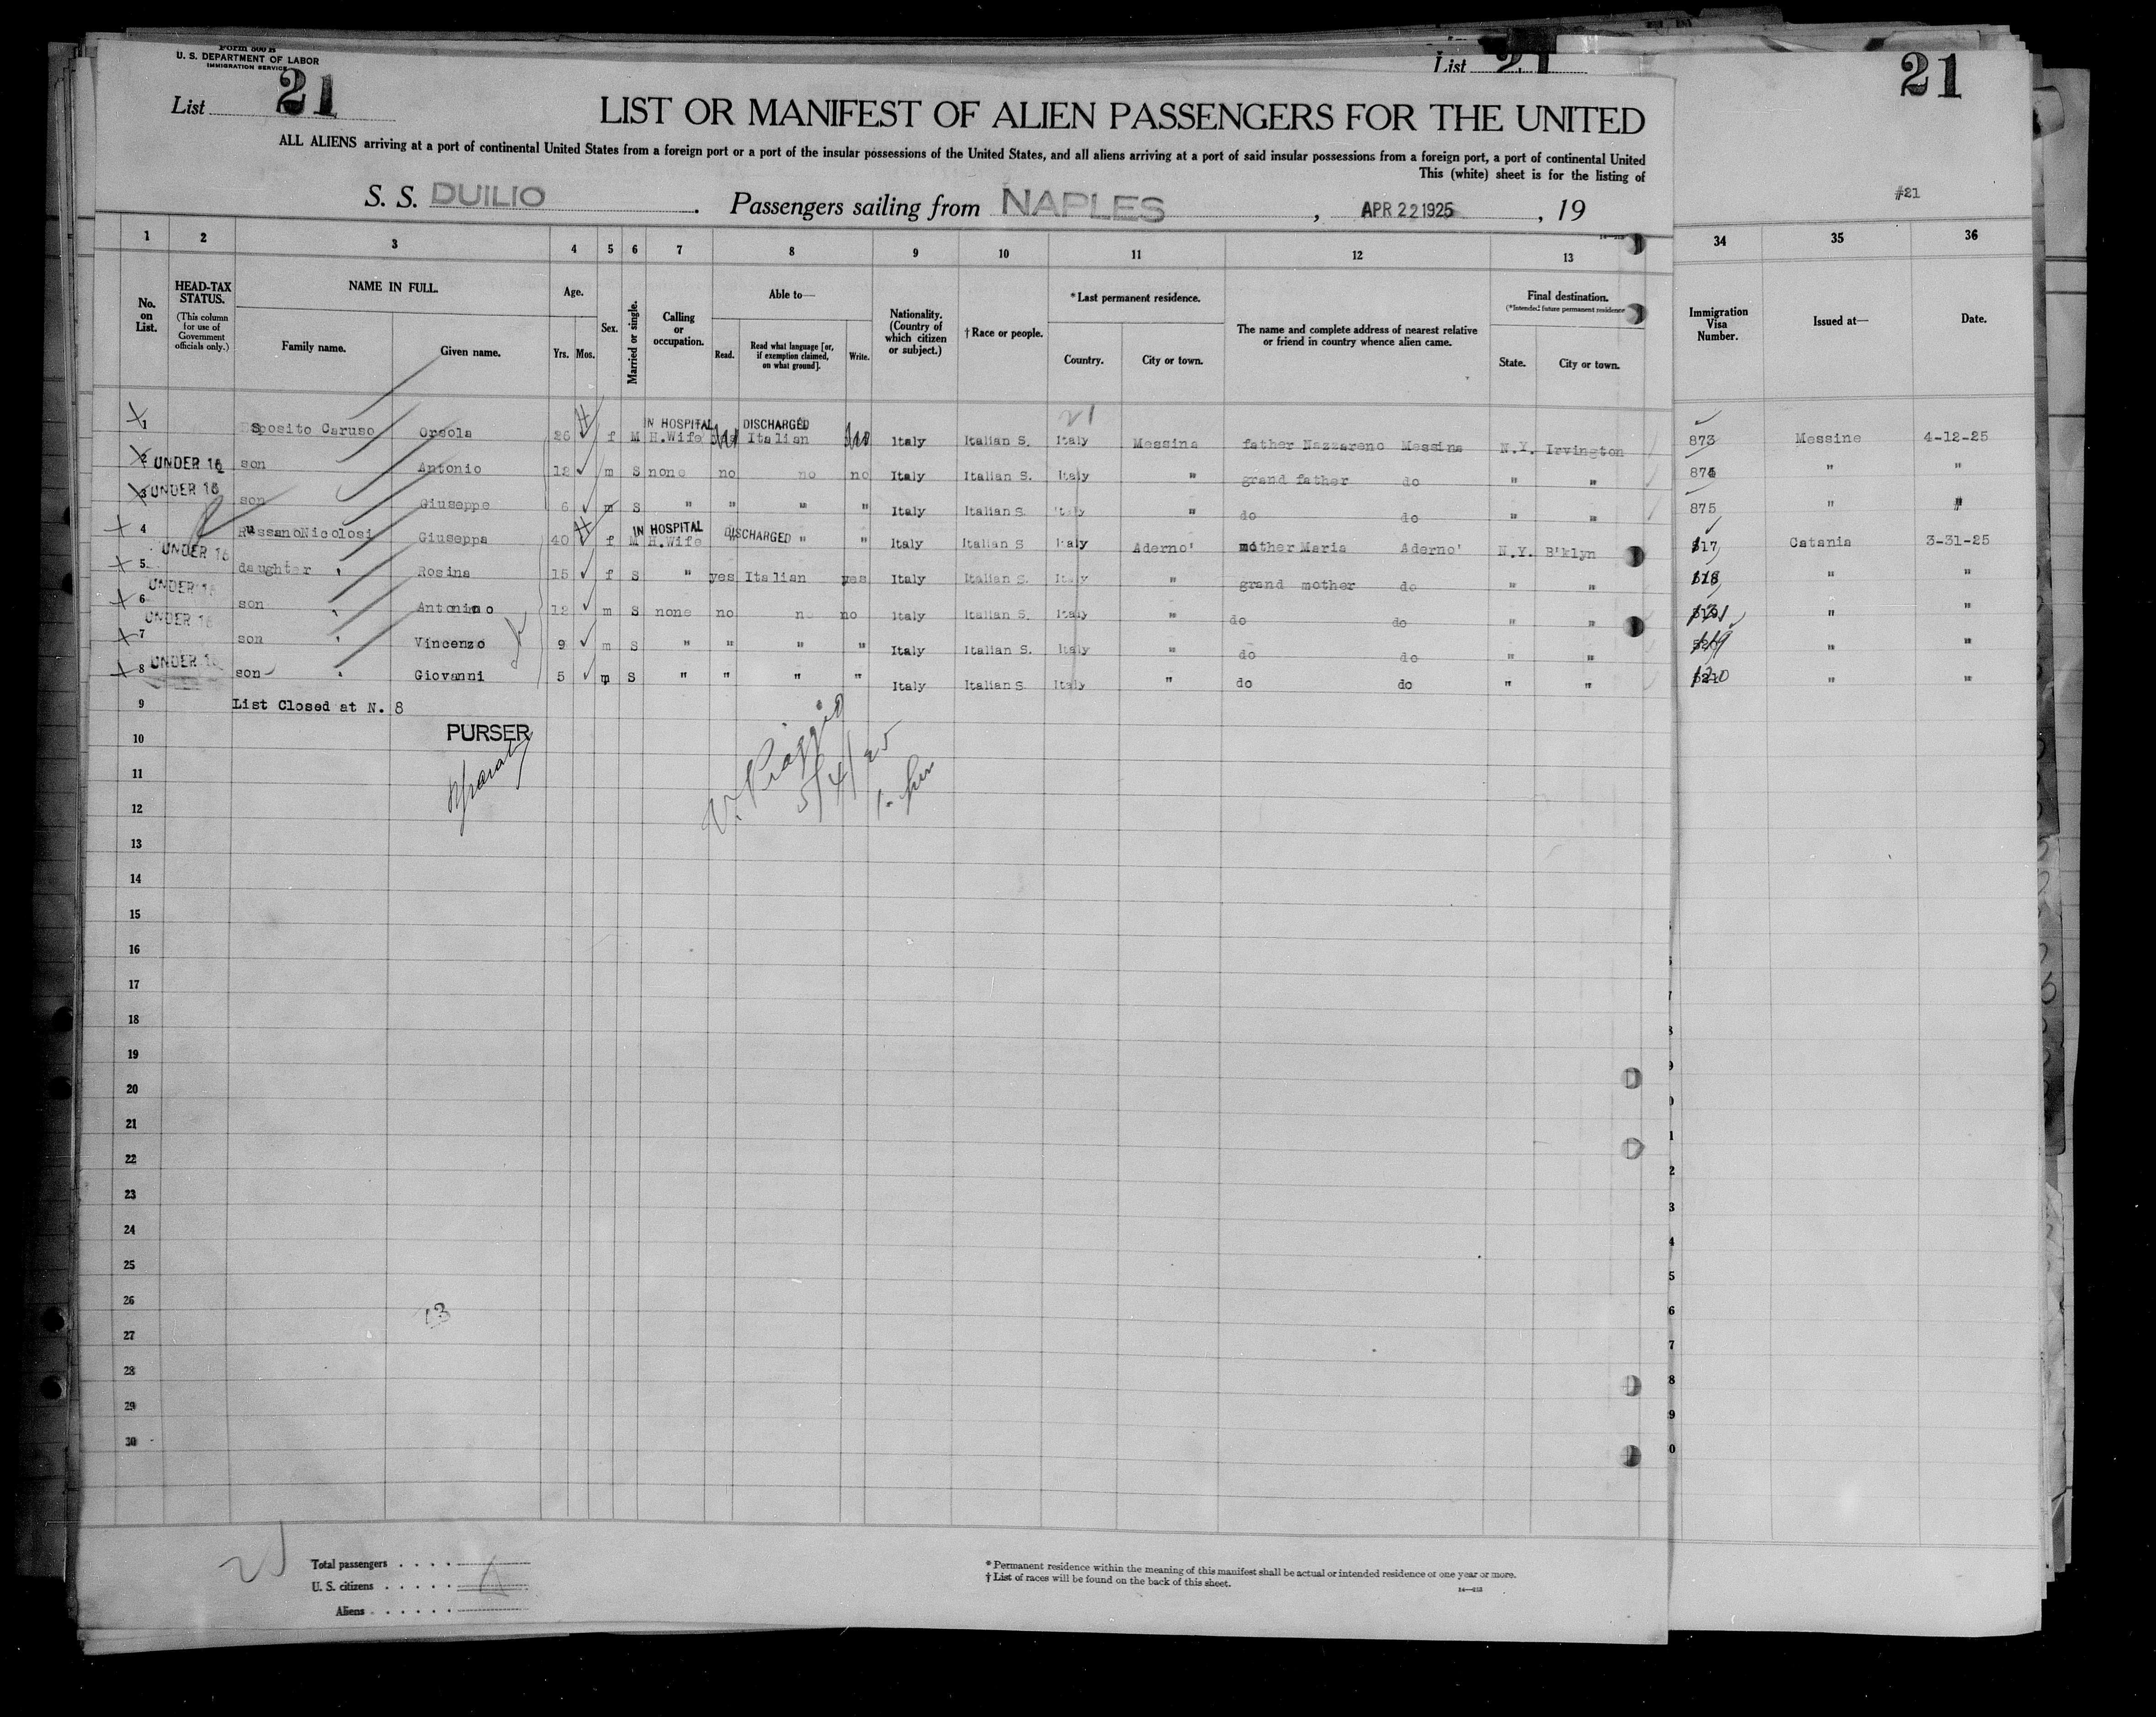 Form 500 B
U. S. DEPARTMENT OF LABOR
IMMIGRATION SERVICE
List 21
List 21
21
LIST OR MANIFEST OF ALIEN PASSENGERS FOR THE UNITED
ALL ALIENS arriving at a port of continental United States from a foreign port or a port of the insular possessions of the United States, and all aliens arriving at a port of said insular possessions from a foreign port, a port of continental United
This (white) sheet is for the listing of
#21
S. S. DUILIO . Passengers sailing from NAPLES , APR 22 1925 , 19
1 2 3 4 5 6 7 8 9 10 11 12 13 34 35 36
No. on List.
HEAD-TAX STATUS.
(This column for use of Government officials only.)
NAME IN FULL.
Family name.
Given name.
Age.
Yrs.
Mos.
Sex.
Married or single.
Calling or occupation.
Able to—
Read.
Read what language [or, if exemption claimed, on what ground].
Write.
Nationality. (Country of which citizen or subject.)
† Race or people.
* Last permanent residence.
Country.
City or town.
The name and complete address of nearest relative or friend in country whence alien came.
Final destination.
(*Intended future permanent residence
State.
City or town.
Immigration Visa Number.
Issued at—
Date.
21
IN HOSPITAL DISCHARGED
1 Esposito Caruso Orsola 26 f M H.Wife Italian Italy Italian S. Italy Messina father Nazzareno Messina N.Y. Irvington 873 Messine 4-12-25
2 UNDER 16 son Antonio 12 m S none no no no Italy Italian S. Italy " grand father do " " 874 " "
3 UNDER 16 son Giuseppe 6 m S " " " " Italy Italian S. Italy " do do " " 875 " "
IN HOSPITAL DISCHARGED
4 Russano Nicolosi Giuseppa 40 f M H.Wife " " " Italy Italian S Italy Aderno' mother Maria Aderno' N.Y. B'klyn 117 Catania 3-31-25
5 UNDER 16 daughter " Rosina 15 f S " yes Italian yes Italy Italian S. Italy " grand mother do " " 118 " "
6 UNDER 16 son " Antonino 12 m S none no no no Italy Italian S. Italy " do do " " " "
7 UNDER 16 son " Vincenzo 9 m S " " " " Italy Italian S. Italy " do do " " 119 " "
8 UNDER 16 son " Giovanni 5 m S " " " " Italy Italian S Italy " do do " " 120 " "
9 List Closed at N. 8
10 PURSER
V. Piaggio
5/4/25
11
12
13
14
15
16
17
18
19
20
21
22
23
24
25
26
27
28
29
30
Total passengers . . . .
U. S. citizens . . . . .
Aliens . . . . . .
* Permanent residence within the meaning of this manifest shall be actual or intended residence of one year or more.
† List of races will be found on the back of this sheet.